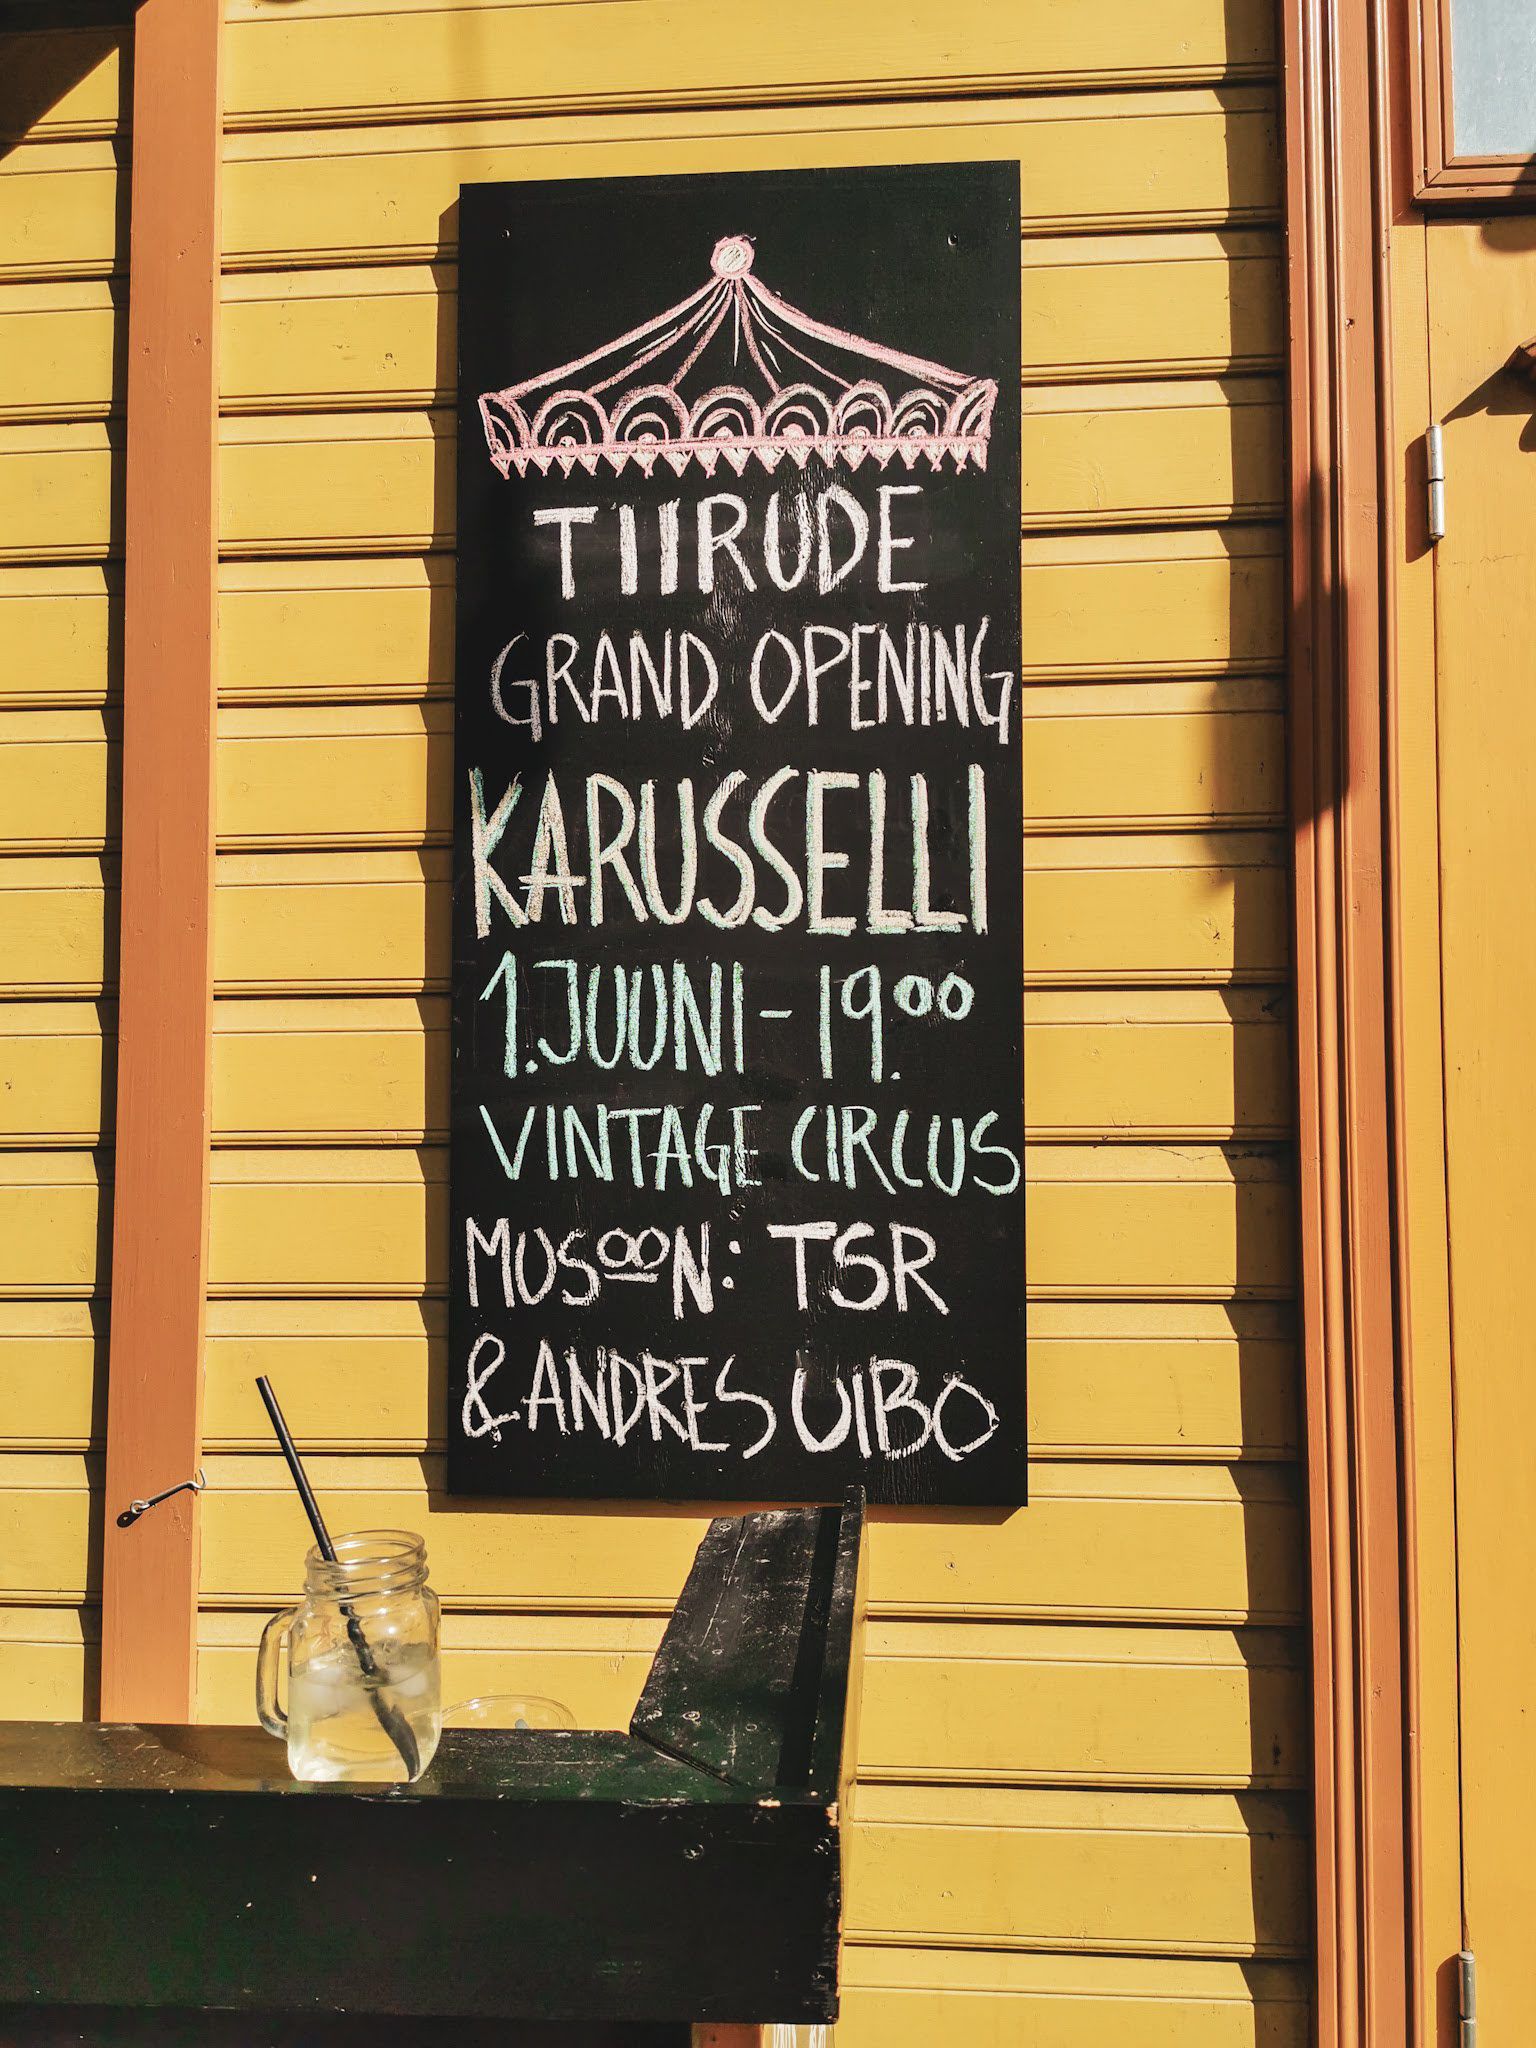 TIIRUDE
GRAND OPENING
KARUSSELLI
1. JUUNI - 19.00
VINTAGE CIRCUS
MUSOON: TSR
& ANDRES UIBO